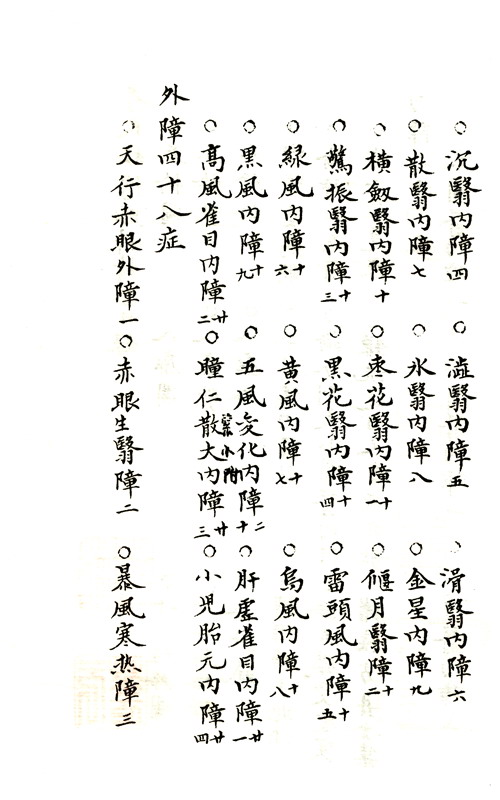 ○沉翳内障四○澁翳内障五○滑翳内障六
○散翳内障七○氷翳内障八○金星内障九
○橫劔翳内障十○枣花翳内障十一○偃月翳障十二
○驚振翳内障十三○黑花翳内障十四○雷頭風内障十五
○緑風内障十六○黄風内障十七○烏風内障十八
○黑風内障十九○五風变化内障二十○肝虛雀目内障廿一
○髙風雀目内障廿二○瞳仁散大内障廿三○小児胎元内障廿四
外障四十八症
○天行赤眼外障一○赤眼生翳障二○暴風寒热障三